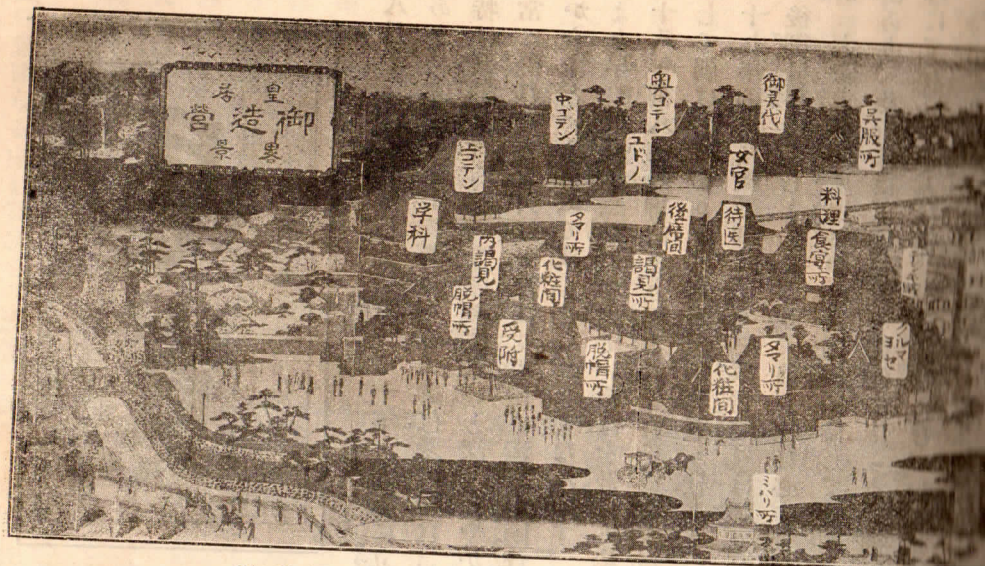 皇居
御造營
畧景
中ゴテン
奥ゴテン
呉服所
上ゴテン
ユドノ
女官
料理
学科
タマリ所
後席間
侍医
食宴所
内謁見
化粧間
謁見所
脱帽所
受附
脱帽所
化粧間
タマリ所
クルマヨセ
ミハリ所